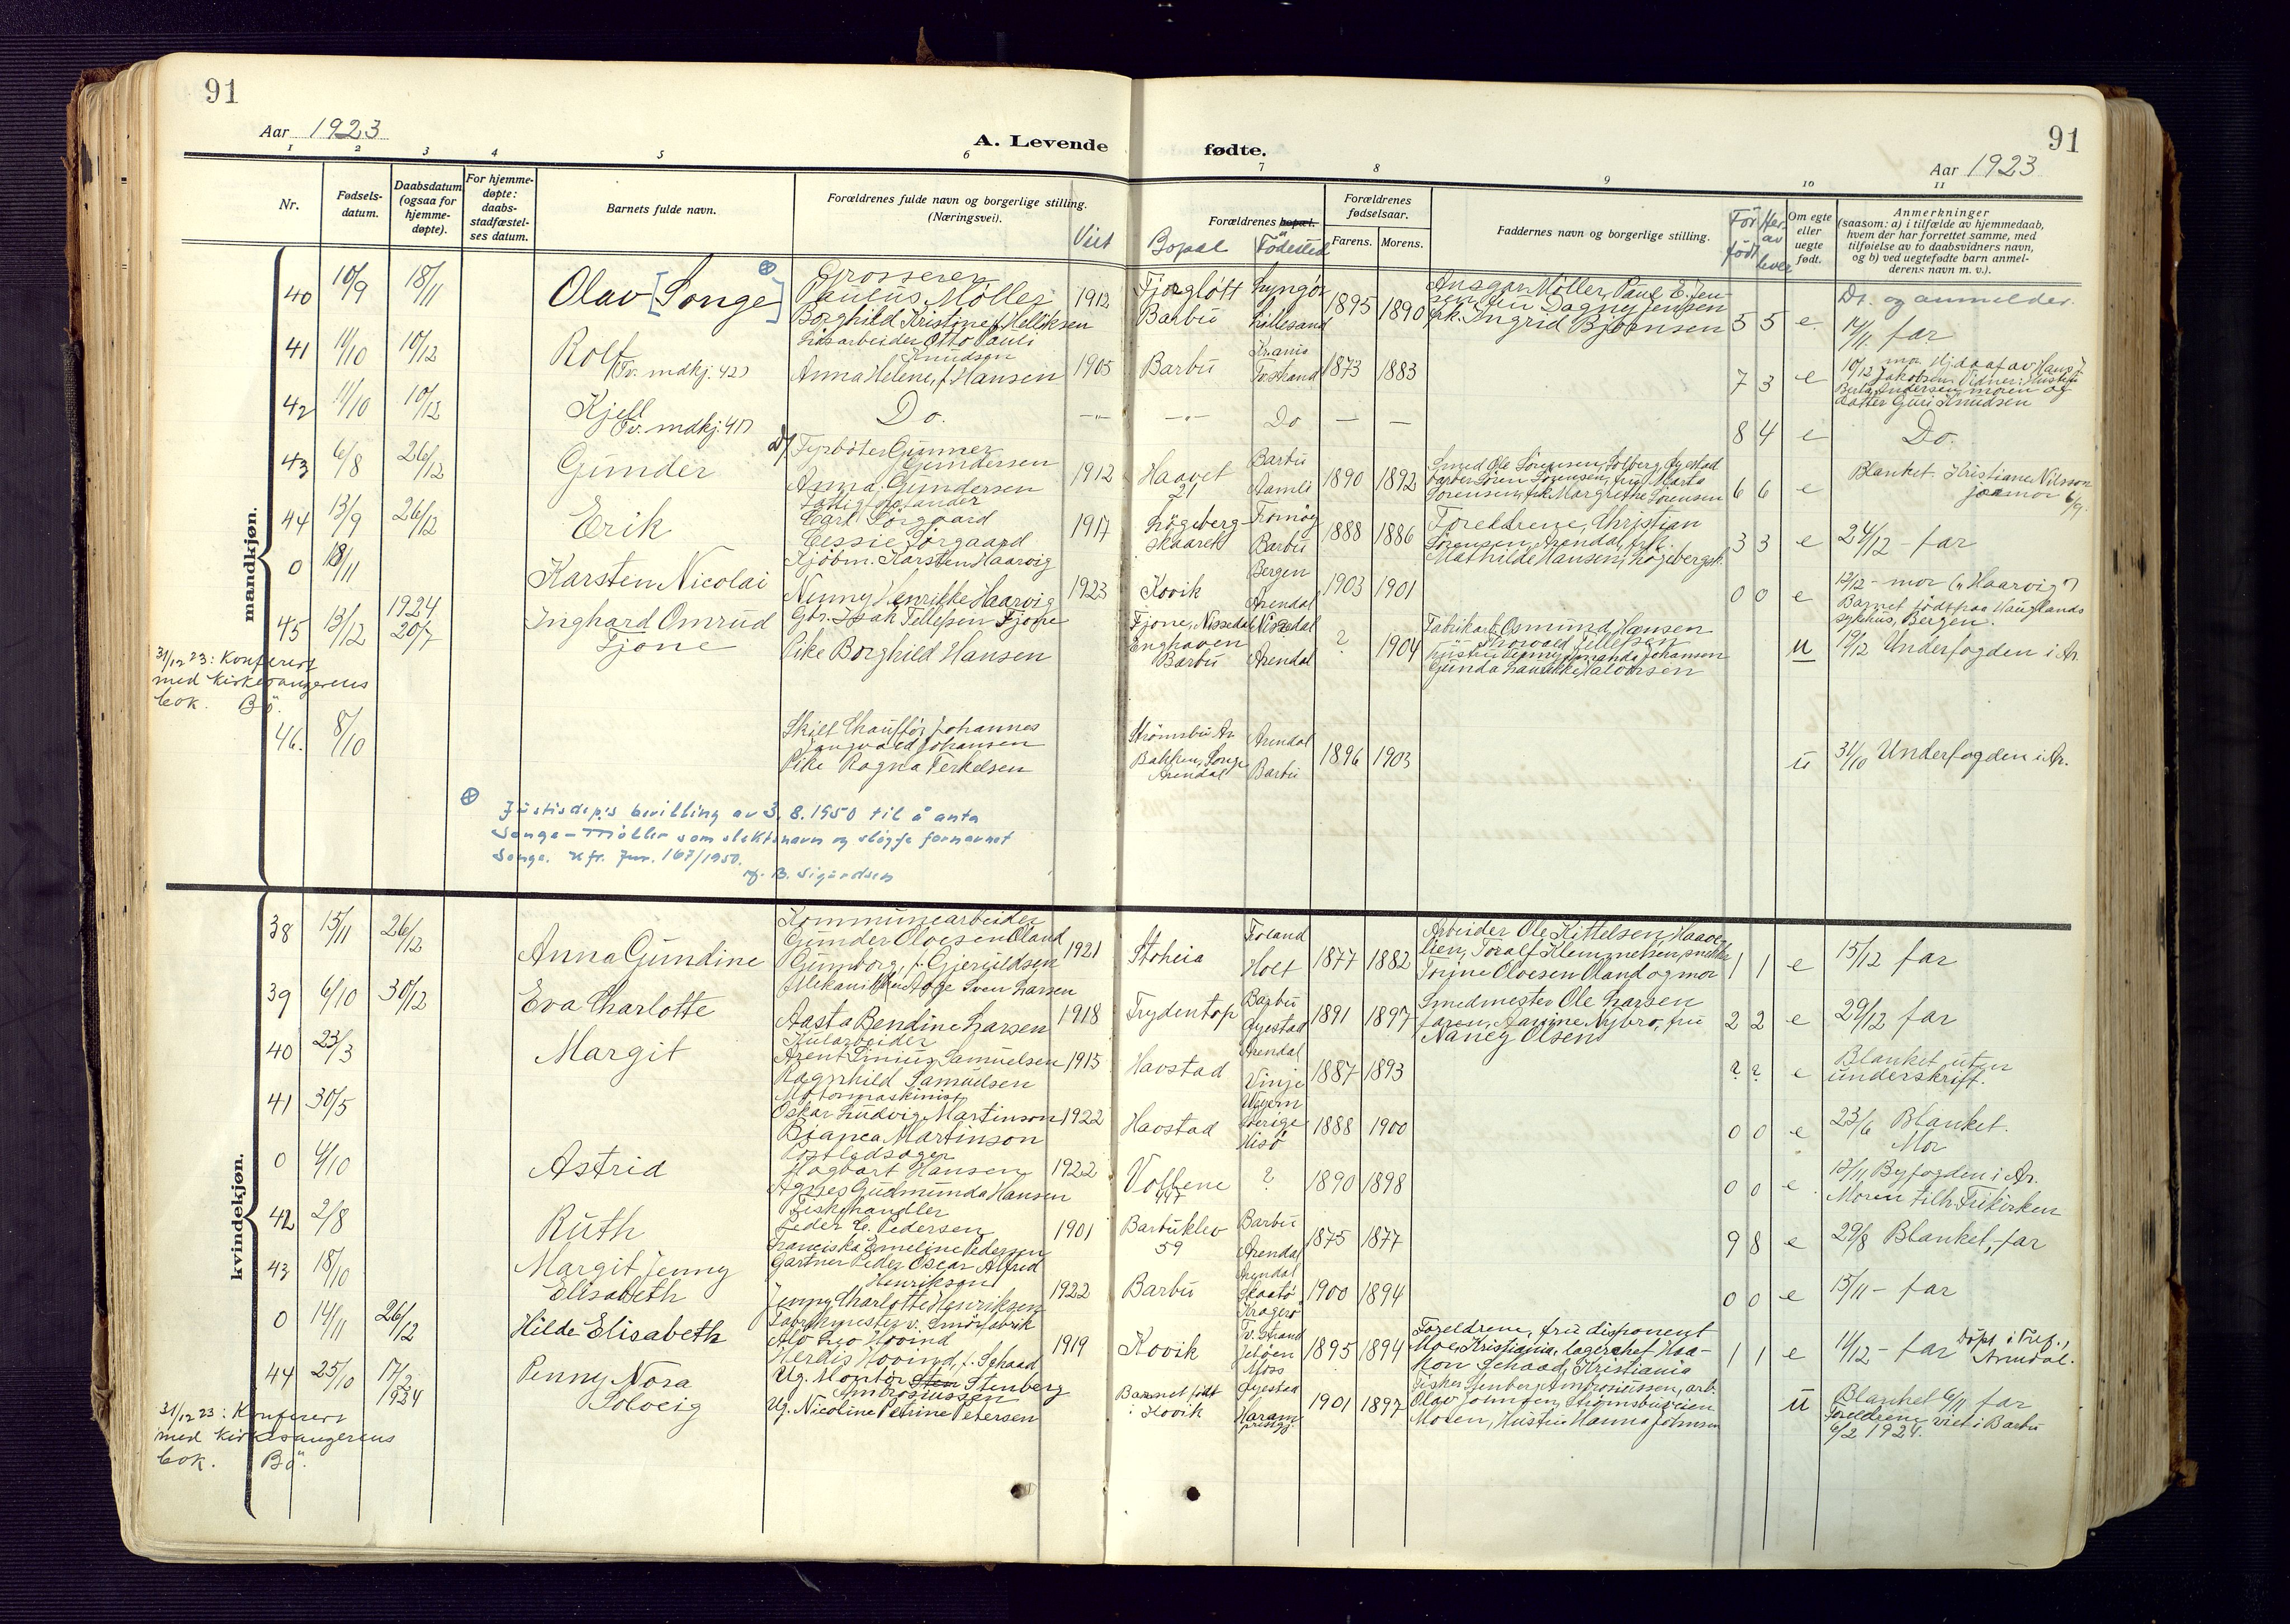 91
91
Aar 1923
A. Levende fødte.
Aar 1923
1 2 3 4 5 6 7 8 9 10 11
Nr.
Fødsels-datum.
Daabsdatum (ogsaa for hjemme-døpte).
For hjemme-døpte: daabs-stadfæstel-ses datum.
Barnets fulde navn.
Forældrenes fulde navn og borgerlige stilling. (Næringsvei).
Viet
Forældrenes bopæl.
Bopæl
Fødested
Forældrenes fødselsaar.
Farens. Morens.
Faddernes navn og borgerlige stilling.
Før født
Her av lever
Om egte eller uegte født.
Anmerkninger
(saasom: a) i tilfælde av hjemmedaab, hvem der har forrettet samme, med tilføielse av to daabsvidners navn, og b) ved uegtefødte barn anmel-derens navn m. v.).
mandkjøn.
40 10/9 18/11 Olav [Songe]
Grosserer
Paulus Møller
Borghild Kristine f. Helliksen
1912
Barbu
Lyngør
Lillesand
1895 1890
Ansgar Møller, Paul E. Jen-
sen, fru Dagny Jensen
frk. Ingrid Bjørnsen
5 5 e.
14/11 far
41 11/10 10/12 Rolf
(Tv. mdkj. 42)
Otto Pauli
Knudsen
Anna Helene, f. Hansen
1905
Barbu
Kr.ania
1873 1883
7 3 e
10/12 mor. Hjdaab av Hans
Jakobsen. Vidner: Hustru
Berta Andersen, moren og
datter Guri Knudsen
42 11/10 10/12 Kjell
Tv. mdkj. 41)
Do.
Do
8 4 e
Do.
43 6/8 26/12 Gunder
Fyrbøter Gunner
Gundersen
Anna Gundersen
1912
Haavet
21
Barbu
Aamli
1890 1892
Smed Ole Sørensen, Solberg, Øyestad
barber Søren Sørensen, frue Marta
Sørensen, frk. Margrethe Sørensen
6 6 e
Blanket. Kristiane Nilsson
jormor 6/9.
44 13/9 26/12 Erik
Carl Sørgaard
Cessie Sørgaard
1917
Løgeberg-
skaaret
Tromøy
Barbu
1888 1886
Foreldrene, Christian
Sørensen, Arendal, frk.
Mathilde Hansen, Løgebergsk.
3 3 e
24/12 - far
0 18/11 Karsten Nicolai
Kjøbm. Karsten Haarvig
Nenny Henrikke Haarvig
1923
Kovik
Bergen
Arendal
1903 1901
0 0 e
12/12 - mor ("Haarvig")
Barnet født paa Hauglands
sykehus, Bergen.
45 13/12 1924 20/7 Inghard Omrud
Fjone
Gbr. Isak Tellefsen Fjone
Pike Borghild Hansen
Fjone, Nissedal
Enghaven
Barbu
Nissedal
Arendal
? 1904
Fabrikarb. Osmund Hansen
Thorvald Tellefsen
Gunda Laurikke Halvorsen
u
19/12 Underfogden i Ar.
31/12 23: Konferert
med kirkesangerens
bok. Bø.
46. 8/10
Skilt Chauffør Johannes
Tangvald Johansen
Pike Ragna Terkelsen
Strømsbu Ar.
Bakken, Songe
Arendal
Arendal
Barbu
1896 1903
u
31/10 Underfogden i Ar.
⊗ Justisdep's bevilling av 3.8.1950 til å anta
Songe-Møller som slektsnavn og sløyfe fornavnet
Songe. Kfr. Jnr. 167/1950.
B. Sigurdsen
kvindekjøn.
38 15/11 26/12 Anna Gundine
Kommunearbeider
Gunder Olvesen Øland
Gunborg, f. Gjeruldsen
1921
Stoheia
Froland
Holt
1877 1882
Arbeider Ole Kittelsen, Haave-
lien, Toralf Klemmetsen, snekker
Torine Olvesen Øland og mor
1 1 e
15/12 far
39 6/10 30/12 Eva Charlotte
Mekaniker Aage Sven Larsen
Aasta Bendine Larsen
1918
Trydentop
Barbu
Øyestad
1891 1897
Smedmester Ole Larsen
faren, Aanine Nybro, fru
Nancy Olsen
2 2 e
29/12 far
40 23/3 Margit
Kularbeider
Arent Sinius Samuelsen
Ragnhild Samuelsen
1915
Havstad
Arendal
Vinje
1887 1893
? ? e
Blanket uten
underskrift.
41 30/5
Motormaskinist
Oskar Ludvig Martinson
Bianca Martinson
1922
Havstad
Sverige
Hisø
1888 1900
0 0 e
23/6 Blanket.
Mor
0 4/10 Astrid
Postledsager
Hagbart Hansen
Agnes Gudmunda Hansen
1922
Vollene
447
?
1890 1898
0 0 e.
12/11 Byfogden i Ar.
Moren tilh. Frikirken
42 2/8 Ruth
Fiskehandler
Peder C. Pedersen
Franciska Emeline Pedersen
1901
Barbuklev
59
Barbu
Arendal
1875 1877
9 8 e
29/8 Blanket, far
43 18/10 Margit Jenny
Elisabeth
Gartner Peder Oscar Alfred
Henriksen
Jenny Charlotte Henriksen
1922
Barbu
Arendal
Skaatø
Kragerø
1900 1894
0 0 e
15/11 - far
0 14/11 26/12 Hilde Elisabeth
Fabrikmester v. Smørfabrik
Alv Leo Hovind
Herdis Hovind, f. Schaad
1919
Kovik
V. Strand
Jeløen
Moss
1895 1894
Foreldrene, fru disponent
Moe, Kristiania, lagerchef Haa-
kon Schaad, Kristiania
1 1 e
14/12 - far Døpt i Tref.,
Arendal.
44 25/10 17/2 1924 Penny Nora
Solveig
Ug. Montør Stenberg
Ambrosiussen
Ug. Nicoline Petrine Petersen
Barnet født
i Kovik
Øyestad
Haram
prestgj.
1901 1897
Fisker Stenberg Ambrosiussen, arb.
Olav Johnsen, Strømsbuveien
Moren, Hustru Hanna Johnsen
u
Blanket 6/11 far
Foreldrene viet i Barbu
6/2 1924.
31/12 23: Konferert
med kirkesangerens
bok. Bø.